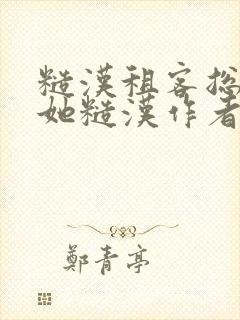 糙漢租客捴
她糙漢作者
鄭青亭